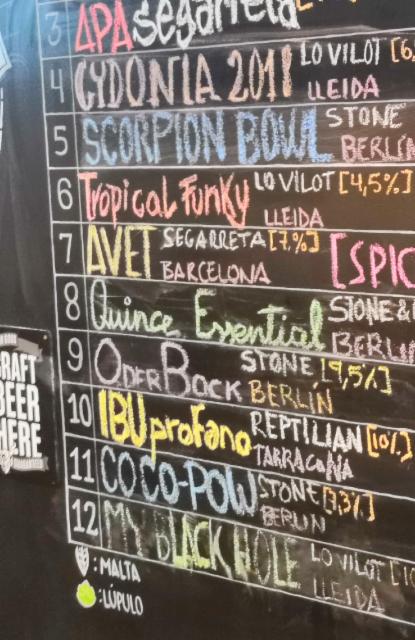 3 APA segarreta
4 CYDONIA 2018 LO VILOT [6,
LLEIDA
5 SCORPION BOWL STONE
BERLÍN
6 Tropical Funky LO VILOT [4,5%]
LLEIDA
7 AVET SEGARRETA [7,%] [SPIC
BARCELONA
8 Quince Essential STONE &
BERLIN
9 ODERBOCK STONE [9,5%]
BERLÍN
10 IBUprofano REPTILIAN [10%]
TARRAGONA
11 COCO-POW STONE [3,3%]
BERLIN
12 MY BLACK HOLE LO VILOT [10
LLEIDA
CRAFT
BEER
HERE
: MALTA
: LÚPULO